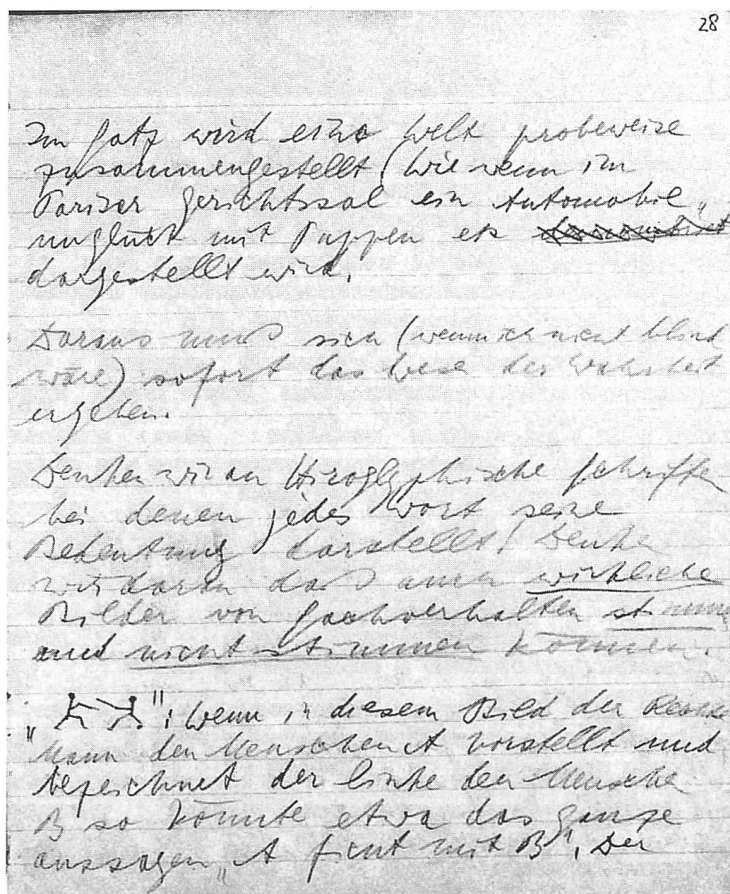 28
Im Satz wird eine Welt probeweise
zusammengestellt (Wie wenn im
Pariser Gerichtssaal ein Automobil„
unglück mit Puppen etc
dargestellt wird.
Daraus muß sich (wenn ich nicht blind
wäre) sofort das Wesen der Wahrheit
ergeben.
Denken wir an Hiroglyphische Schriften
bei denen jedes Wort seine
Bedeutung darstellt! Denke
wir daran daß auch wirkliche
Bilder von Sachverhalten stimmen
und nicht stimmen können.
„ “: Wenn in diesem Bild der Rechte
Mann den Menschen A vorstellt und
bezeichnet der linke den Menschen
B so könnte etwa das ganze
aussagen „A ficht mit B“. Der